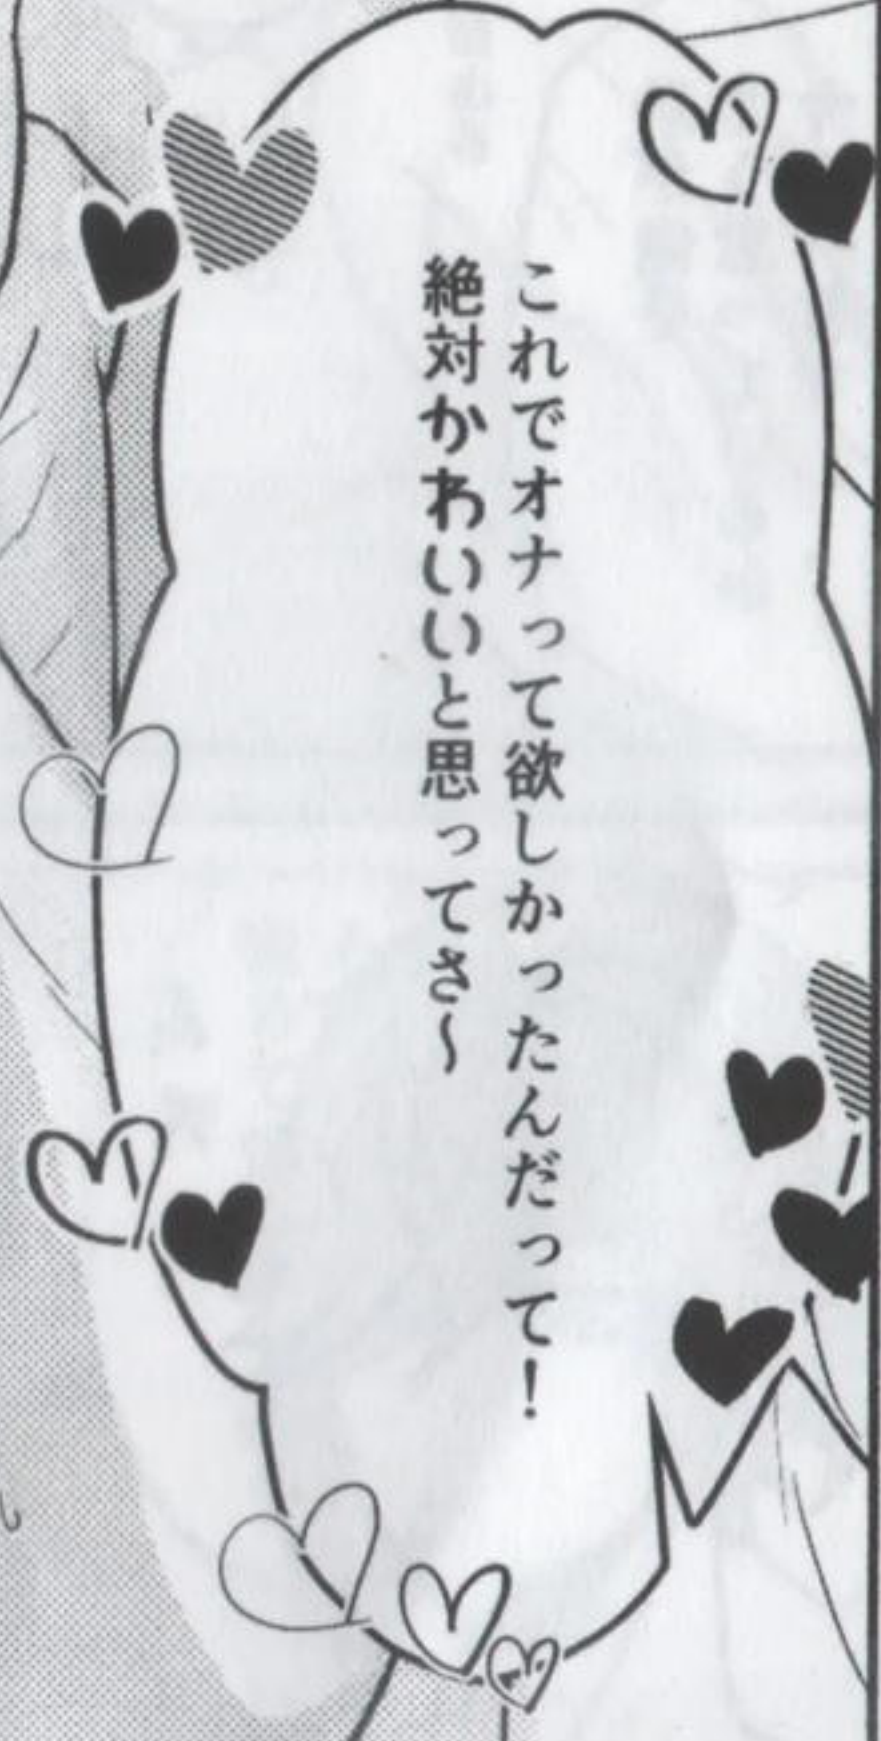 これでオナって欲しかったんだって！
絶対かわいいと思ってさ～